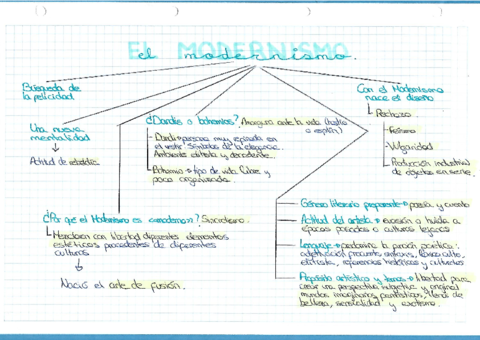 EL MODERNISMO
el modernismo.
Búsqueda de
la felicidad
Una nueva
mentalidad
Actitud de rebeldía.
¿Dandis o bohemios? Amargura ante la vida (hastío
o esplín)
Dandi → persona muy refinada en
el vestir. Símbolo de la elegancia.
Ambiente elitista y decadente.
Bohemio → tipo de vida libre y
poco organizada.
Con el Modernismo
nace el diseño
Rechazo
Feísmo
Vulgaridad
Producción industrial
de objetos en serie.
¿Por qué el Modernismo es renovador? Sincretismo.
Mezclaron con libertad diferentes elementos
estéticos procedentes de diferentes
culturas
Nació el arte de fusión.
Género literario preferente → poesía y cuento
Actitud del artista → evasión o huida a
épocas pasadas o culturas lejanas
Lenguaje → predomina la función poética:
adjetivación frecuente
elitista, referencias históricas y culturales
Propósito artístico y temas → libertad para
crear una perspectiva subjetiva y original
mundos imaginarios, fantásticos, llenos de
belleza, sensualidad y exotismo.